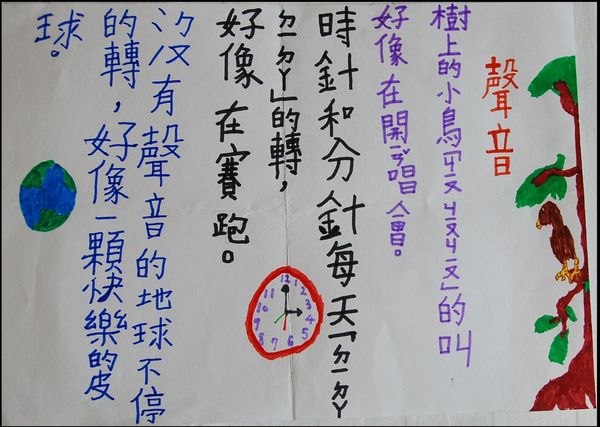 聲音
樹上的小鳥「ㄐㄧㄡ ㄐㄧㄡㄐㄧㄡ」的叫
好像在開唱會。
時針和分針每天「ㄉㄧㄉㄚ
ㄉㄧㄉㄚ」的轉，
好像在賽跑。
沒有聲音的地球不停
的轉，好像一顆快樂的皮
球。
12 1 2 3 4 5 6 7 8 9 10 11